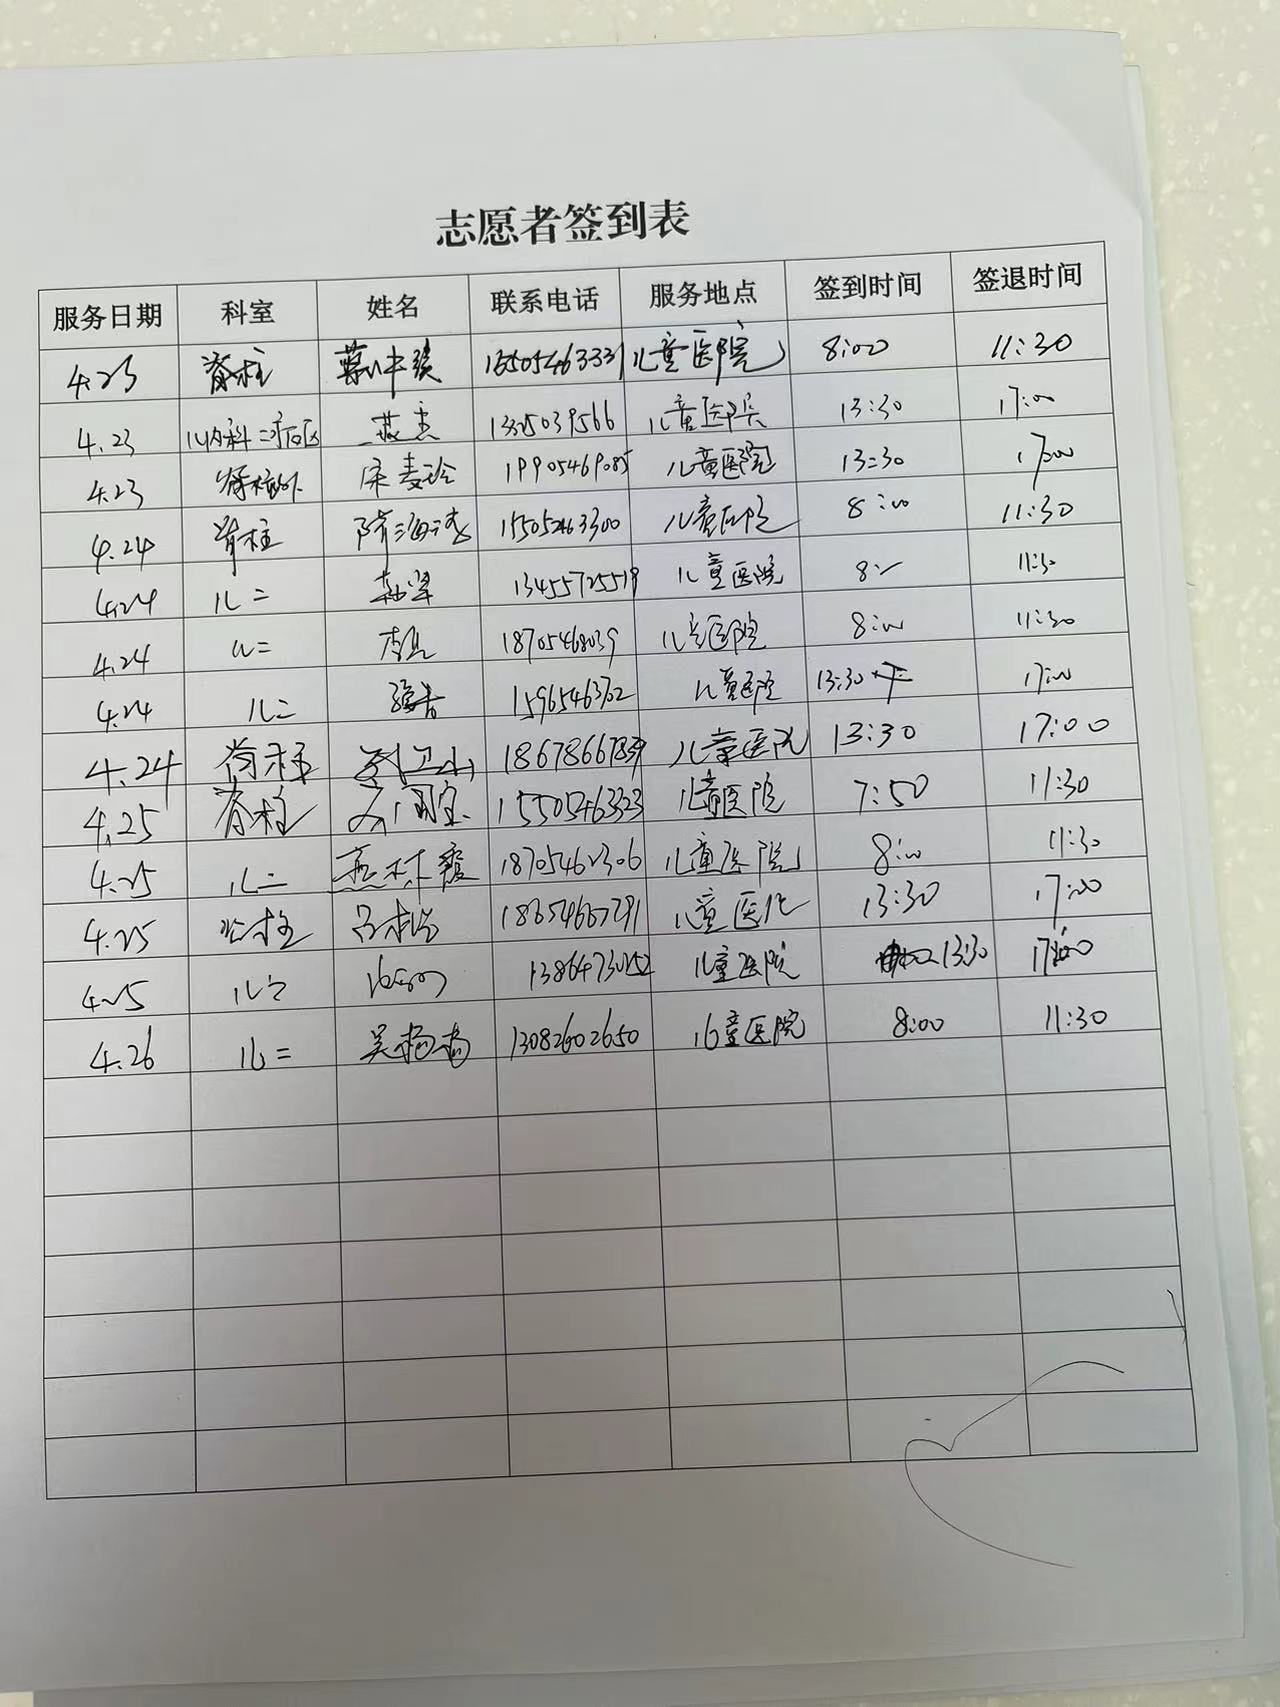 志愿者签到表
服务日期 科室 姓名 联系电话 服务地点 签到时间 签退时间
4.23 脊柱 15505463331 儿童医院 8:00 11:30
4.23 儿内科二病区 1325039566 儿童医院 13:30 17:00
4.23 脊柱外 宋麦玲 19905469085 儿童医院 13:30 17:00
4.24 脊柱 隋海涛 15505463300 儿童医院 8:00 11:30
4.24 儿二 13455725519 儿童医院 11:30
4.24 儿二 18705468039 儿童医院 8:00 11:30
4.24 儿二 1596546302 儿童医院 13:30 17:00
4.24 脊柱 刘卫山 18678667839 儿童医院 13:30 17:00
4.25 脊柱 15505463323 儿童医院 7:50 11:30
4.25 儿二 燕林霞 18705462306 儿童医院 8:00 11:30
4.25 脊柱 吕梅 儿童医院 13:30 17:00
4.25 儿二 儿童医院 13:30 17:00
4.26 儿二 吴杨杨 13082602650 儿童医院 8:00 11:30